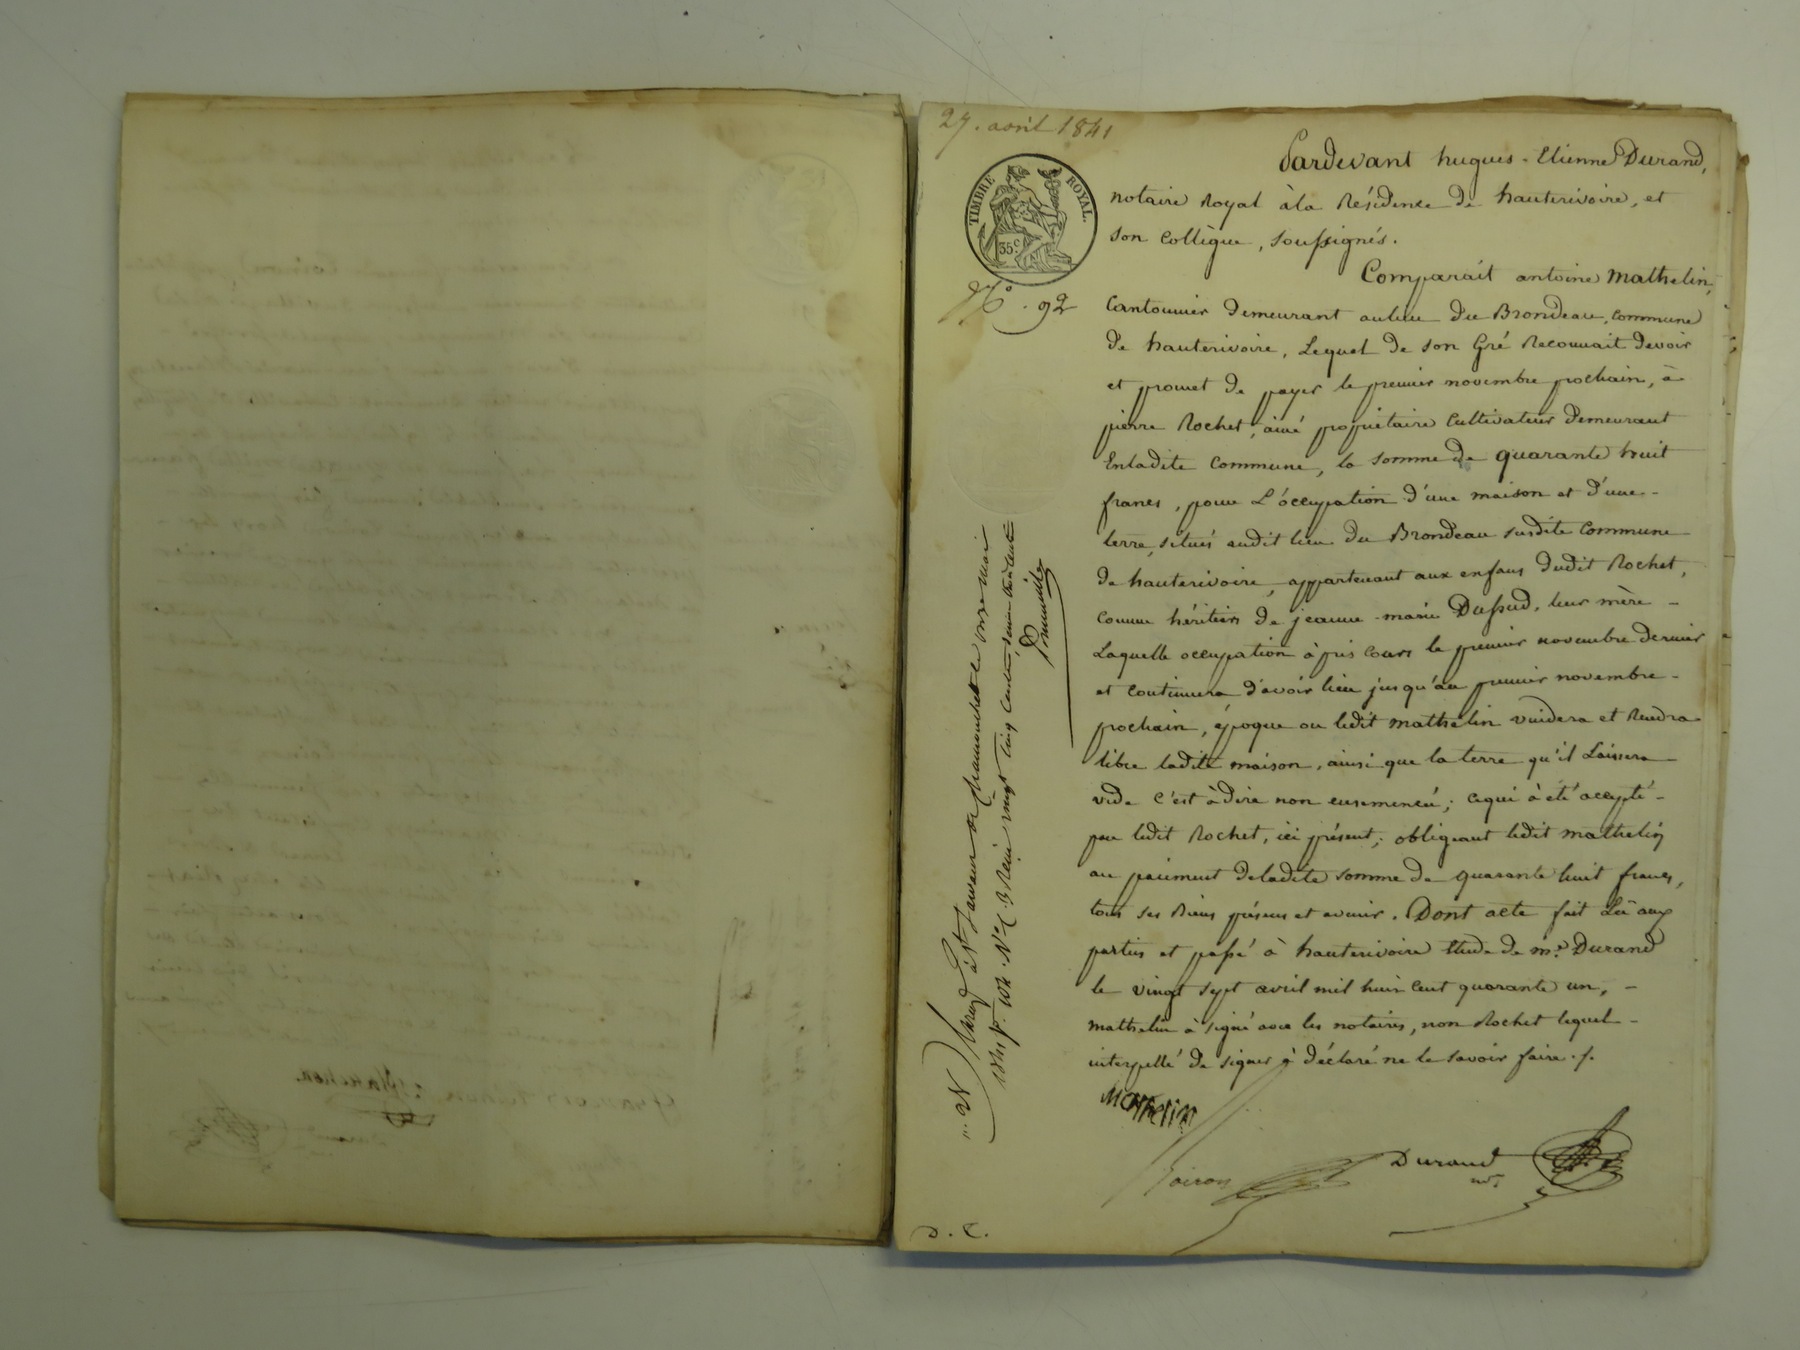 27. avril 1841
TIMBRE ROYAL.
35 c.
N.° 92
Pardevant hugues-Etienne Durand,
notaire Royal àla Résidence de hauterivoire, et
son collègue, soussignés.
Comparait antoine Mathelin,
Cantonnier demeurant aulieu du Brondeau, commune
de hauterivoire, Lequel de son Gré Reconnait devoir
et promet de payer le premier novembre prochain, à
pierre Rochet, ainé propriétaire cultivateur demeurant
Enladite commune, la somme de quarante huit
francs, pour L'occupation d'une maison et d'une-
terre, situés audit lieu du Brondeau susdite commune
de hauterivoire, appartenant aux enfans dudit Rochet,
comme héritiers de jeanne-marie Dussud, leur mère-
Laquelle occupation à pris cours le premier novembre dernier
et continuera d'avoir lieu jusqu'au premier novembre-
prochain, époque ou ledit mathelin vuidera et Rendra
libre ladite maison, ainsi que la terre qu'il Laissera
vide c'est àdire non ensemencée; cequi à été accepté-
par ledit Rochet, ici présent; obligeant ledit mathelin
au paiement deladite somme de quarante huit francs,
tous ses Biens présens et avenir. Dont acte fait Lu aux
parties et passé à hauterivoire Etude de m.e Durand
le vingt sept avril mil huit cent quarante un, -
mathelin à signé avec les notaires, non Rochet lequel-
interpellé de signer à déclaré ne le savoir faire./.
Mathelin
Durand
n.re
D. C.
à St Laurent de Chamousset le onze Mai
1841 f. 104. V.° C. 3 Reçu vingt cinq cent.